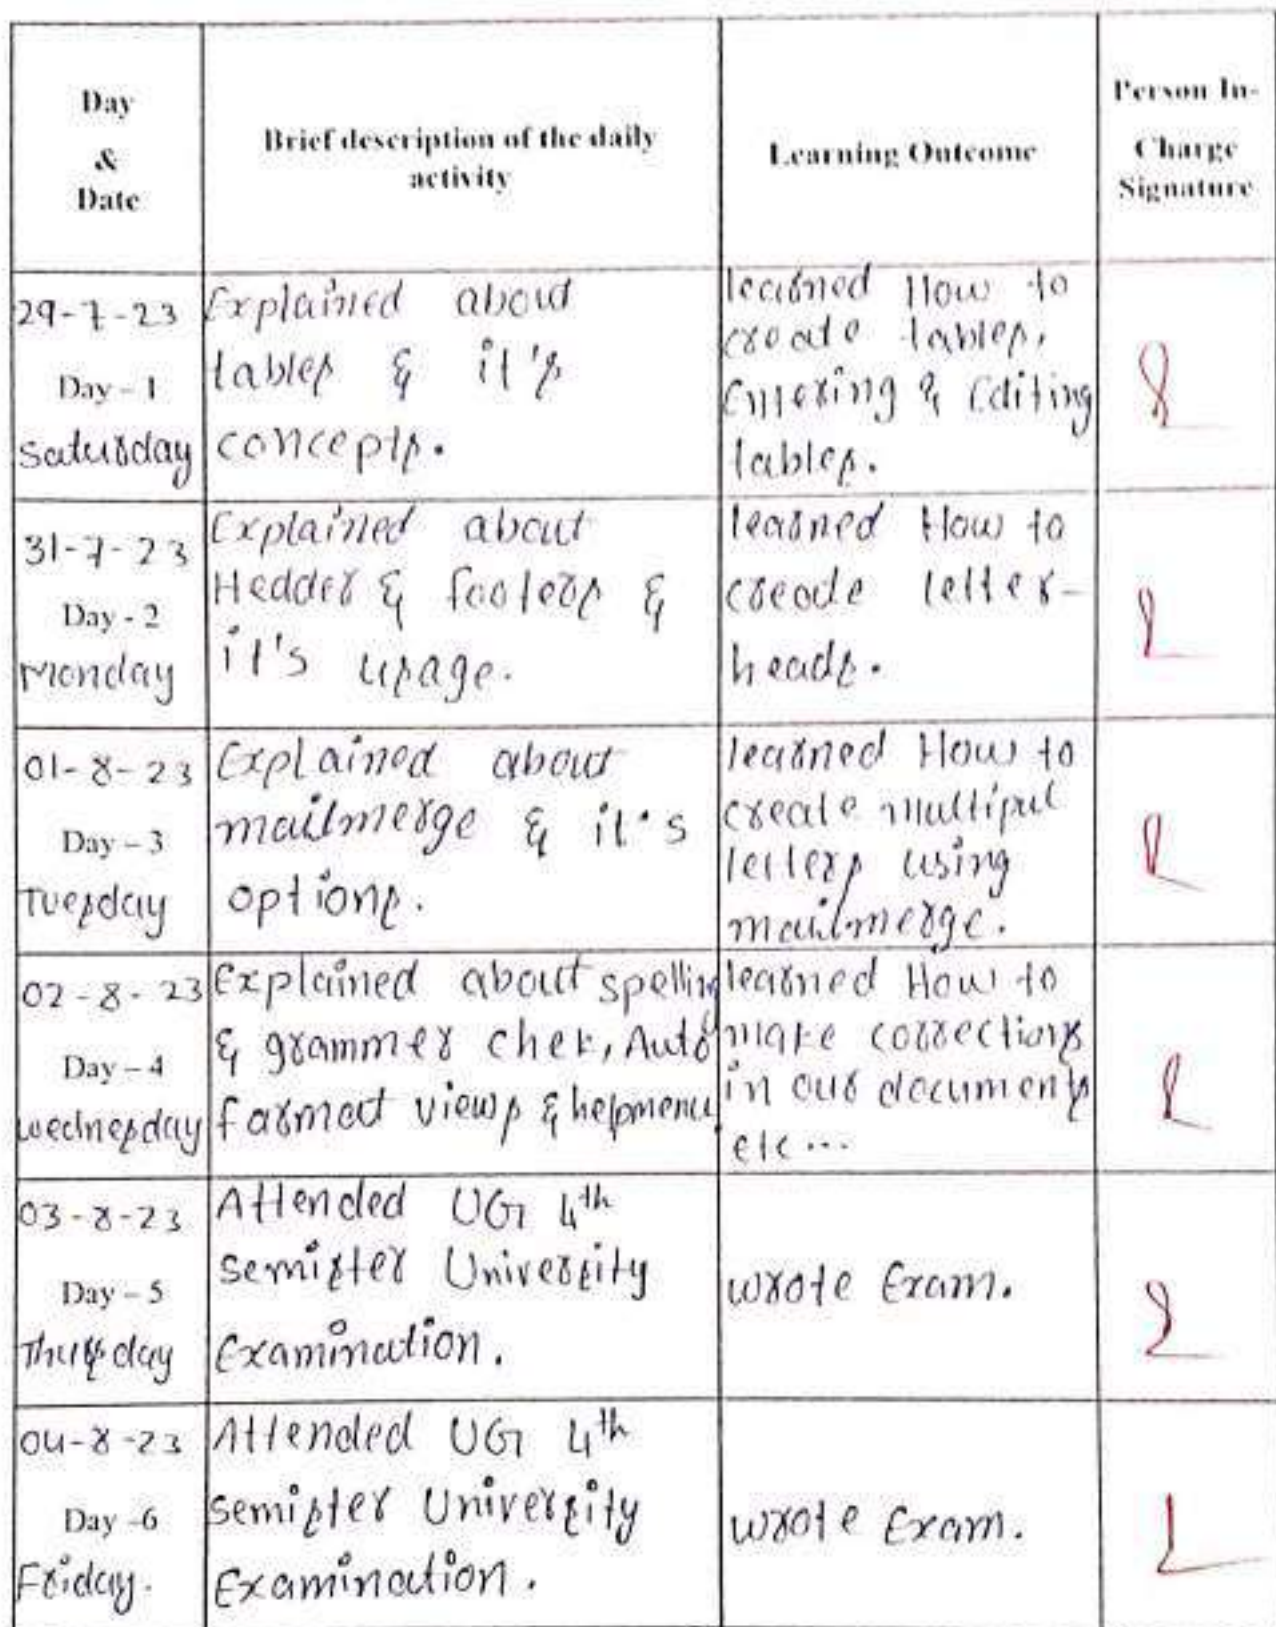 Day
&
Date
Brief description of the daily
activity
Learning Outcome
Person In-
Charge
Signature
29-7-23
Day – 1
Saturday
Explained about
tables & it's
concepts.
learned How to
create tables,
Entering & Editing
tables.
31-7-23
Day - 2
Monday
Explained about
Hedder & footers &
it's usage.
learned How to
create letter-
heads.
01-8-23
Day – 3
Tuesday
Explained about
mailmerge & it's
options.
learned How to
create multipul
letters using
mailmerge.
02-8-23
Day – 4
wednesday
Explained about spelling
& grammer chek, Auto
farmat views & helpmenu.
learned How to
make corrections
in our documents
etc...
03-8-23
Day – 5
Thursday
Attended UG 4th
semister University
Examination.
wrote Exam.
04-8-23
Day -6
Friday.
Attended UG 4th
semister University
Examination.
wrote Exam.